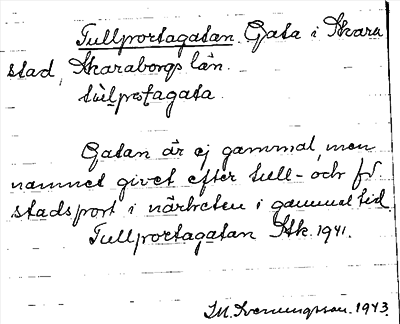 Tullportagatan. Gata i Skara
stad, Skaraborgs län.
tu̇lpo̱rtagata
Gatan är ej gammal, men
namnet givet efter tull- och fd.
stadsport i närheten i gammal tid.
Tullportagatan Stk. 1941.
Th. Svenungsson. 1943.